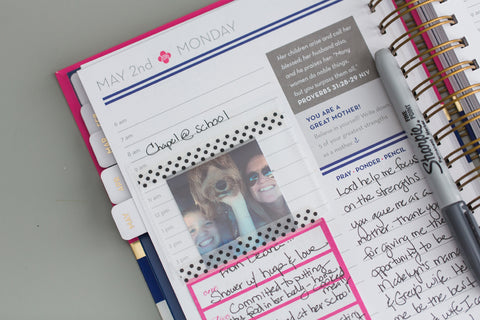 MAY 2nd MONDAY
6 am
7 am
Chapel @ school
8 am
1 pm
2 pm
3 pm
Her children arise and call her
blessed; her husband also,
and he praises her: "Many
women do noble things,
but you surpass them all."
PROVERBS 31:28-29 NIV
YOU ARE A
GREAT MOTHER!
Believe yourself! Write down
5 of your greatest strengths
as a mother.
PRAY · PONDER · PENCIL
Lord help me focus
on the strengths
you gave me as a
mother. Thank you
for giving me the
opportunity to be
Madelyn's mama
& Greg's wife. He
me be the best
wife I ca
Shower w/ hugs & love
Committed to putting
food in her body - home
cooked
at her school
Sharpie